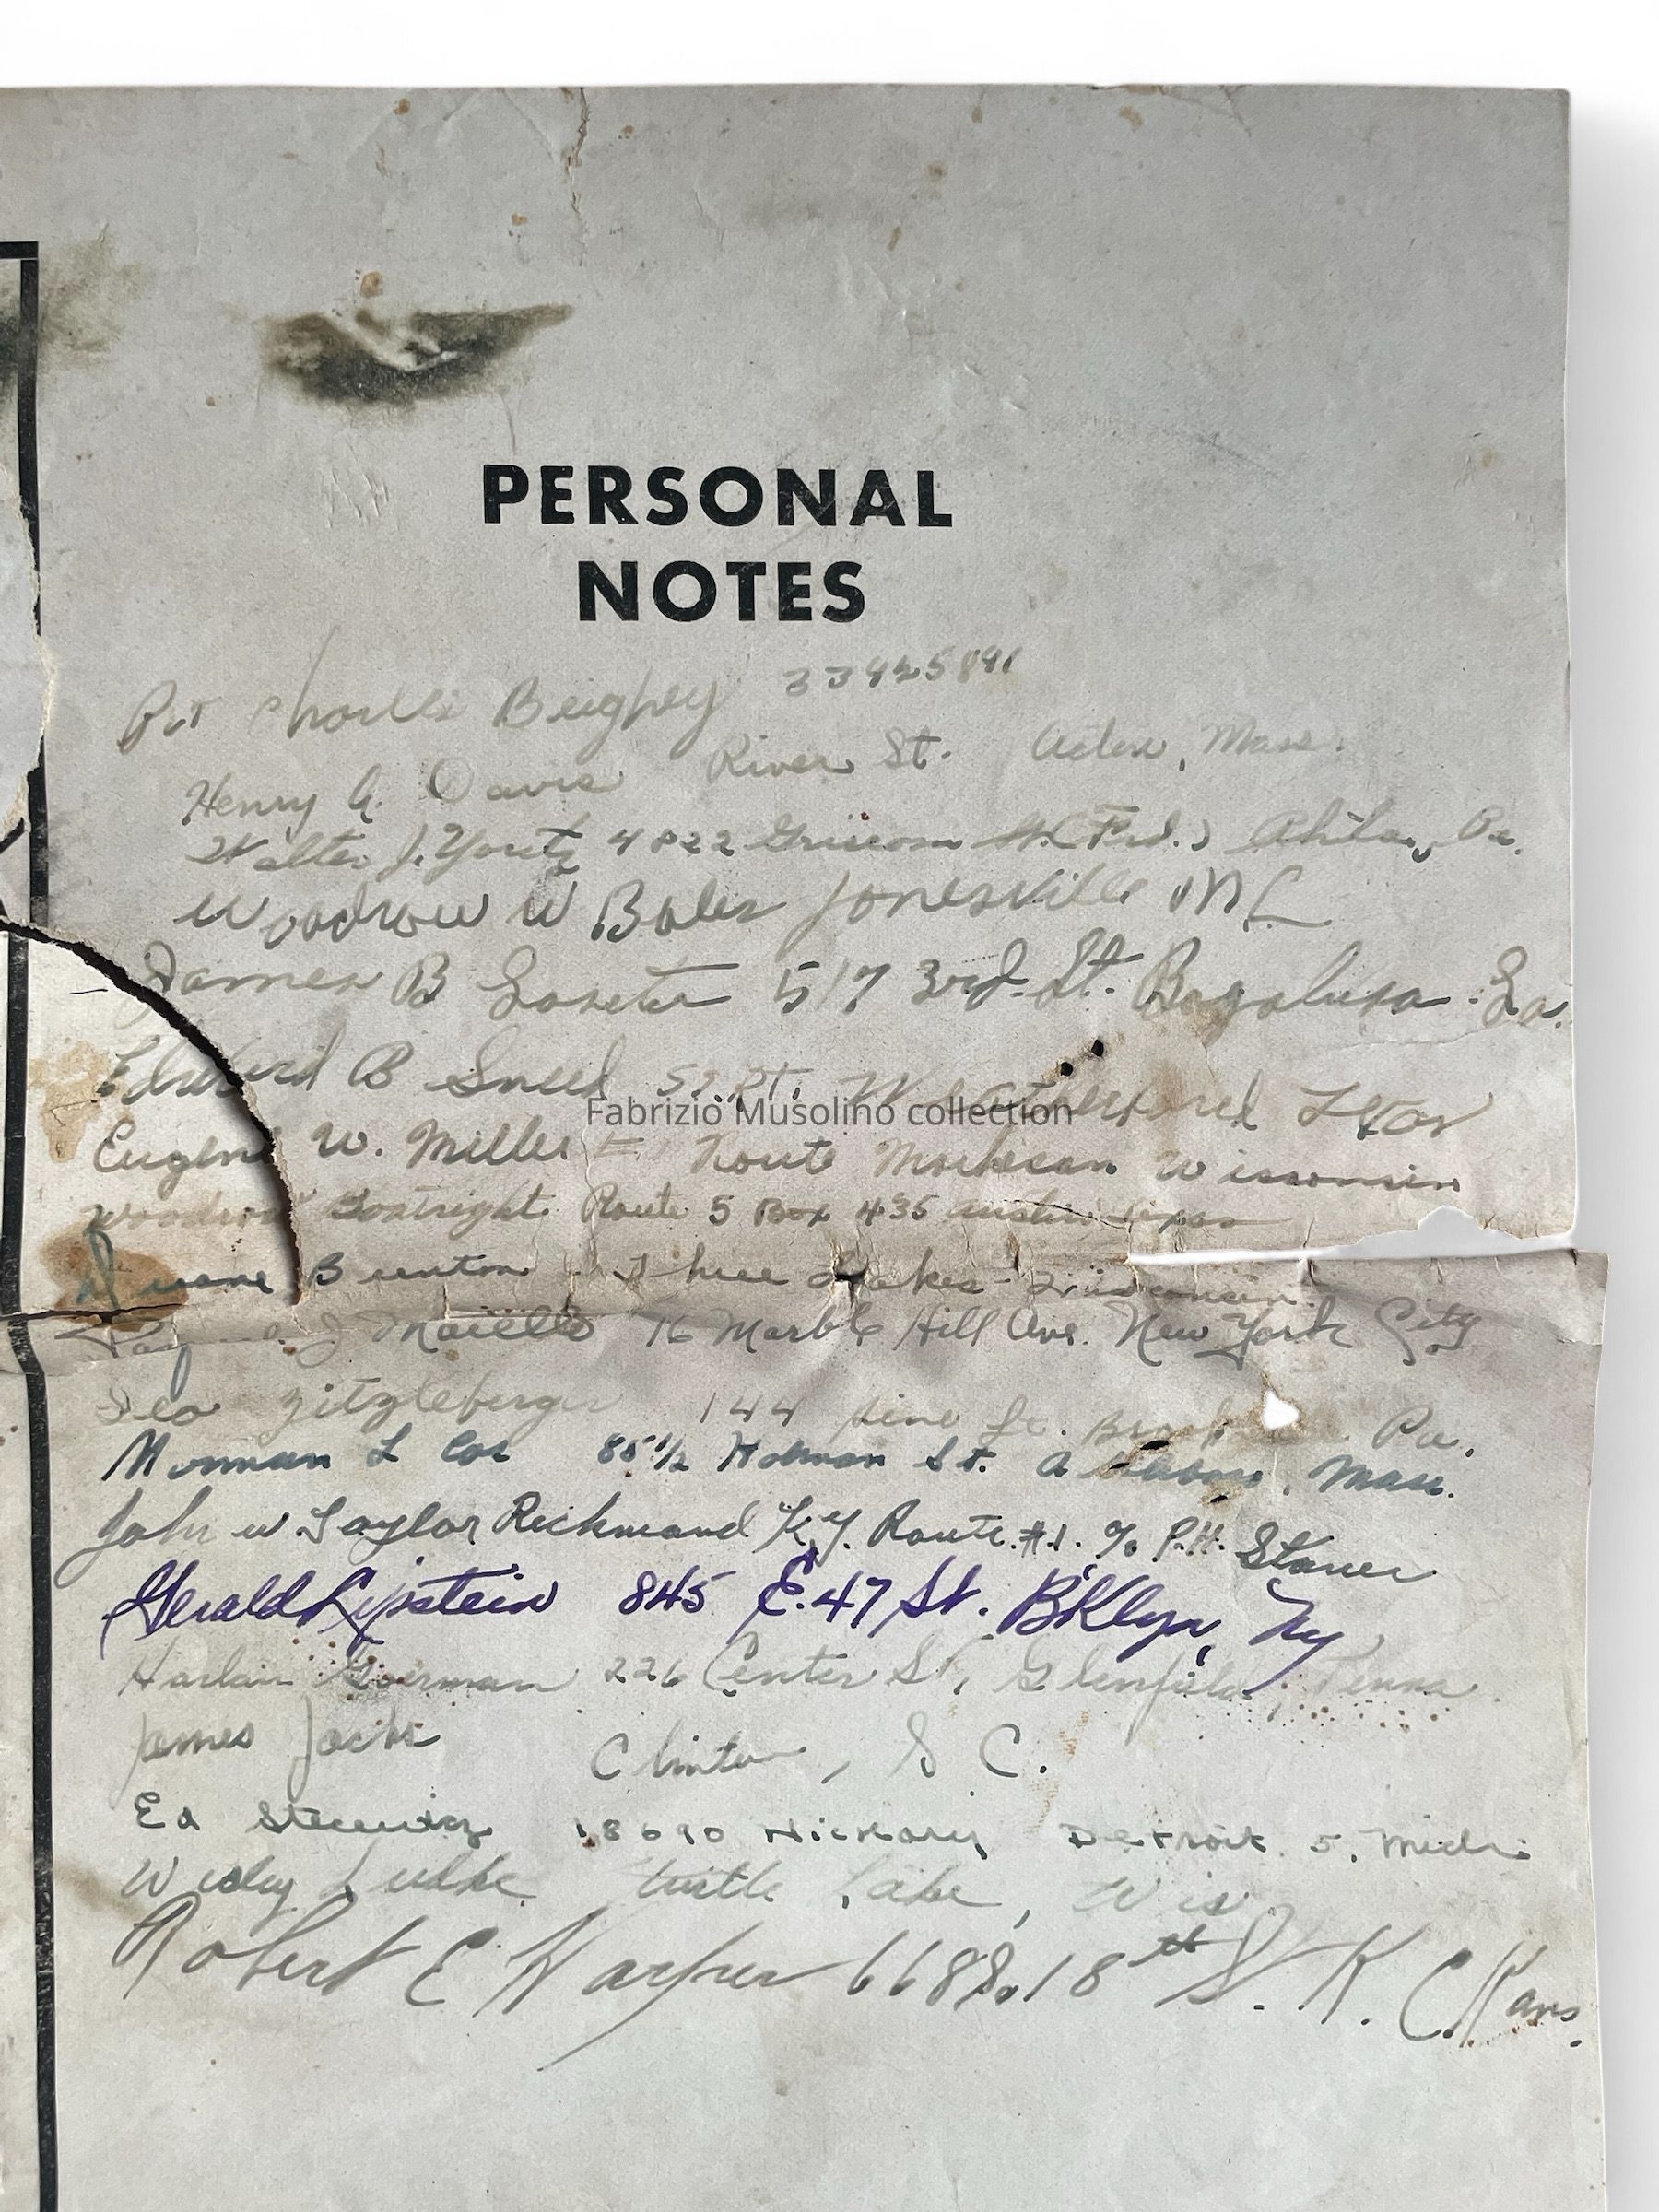 PERSONAL
NOTES
Pvt Charlie Beighey 33925891
Henry A. Davis River St. Acton, Mass.
Walter J. Yontz 4822 Griscom St. (Frd.) Phila., Pa.
Woodrow W Boles Jonesville NC
James B 517 3rd. St. Bogalusa La.
Edward B Sneed Weatherford Texas
Fabrizio Musolino collection
Eugene W. Miller Route Markesan Wisconsin
Woodrow Boatright Route 5 Box 435 Austin Texas
Duane Brunton Three Lakes - Wisconsin
J Maiello 16 Marble Hill Ave. New York City
Geo Zitzleberger 144 Pine St. Pa.
Norman L Cos 85 1/2 Holman St. Attleboro, Mass.
John W Taylor Richmond Ky. Route #1. c/o P.H. Stamer
Gerald Epstein 845 E. 47 St. B'Klyn, Ny
Harlan Goerman 226 Center St, Glenfield, Penna.
James Jacks Clinton, S C.
Ed 18690 Hickory Detroit 5, Mich.
Wesley Luebke Turtle Lake, Wis
Robert E Harper 668 S. 18th St. K. C. Kans.